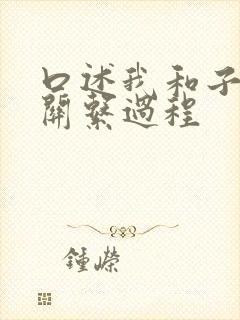 口述我和子
関繫過程
鍾嶸